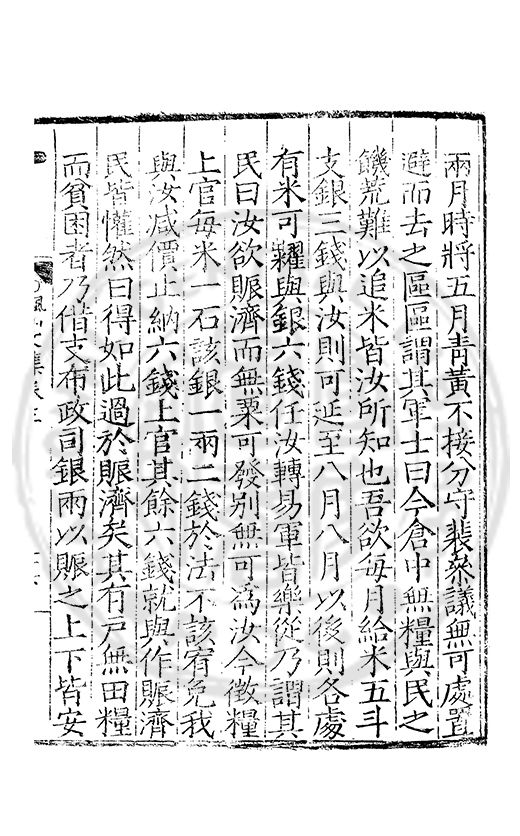 兩月時將五月青黃不接分守裴叅議無可處置
避而去之區區謂其軍士曰今倉中無糧與民之
饑荒難以追米皆汝所知也吾欲每月給米五斗
支銀三錢與汝則可延至八月八月以後則各處
有米可糴與銀六錢任汝轉易軍皆樂從乃謂其
民曰汝欲賑濟而無粟可發別無可為汝今徵糧
上官每米一石該銀一兩二錢於法不該宥免我
與汝减價止納六錢上官其餘六錢就與作賑濟
民皆懽然曰得如此過於賑濟矣其有戶無田糧
而貧困者乃借支布政司銀兩以賑之上下皆安